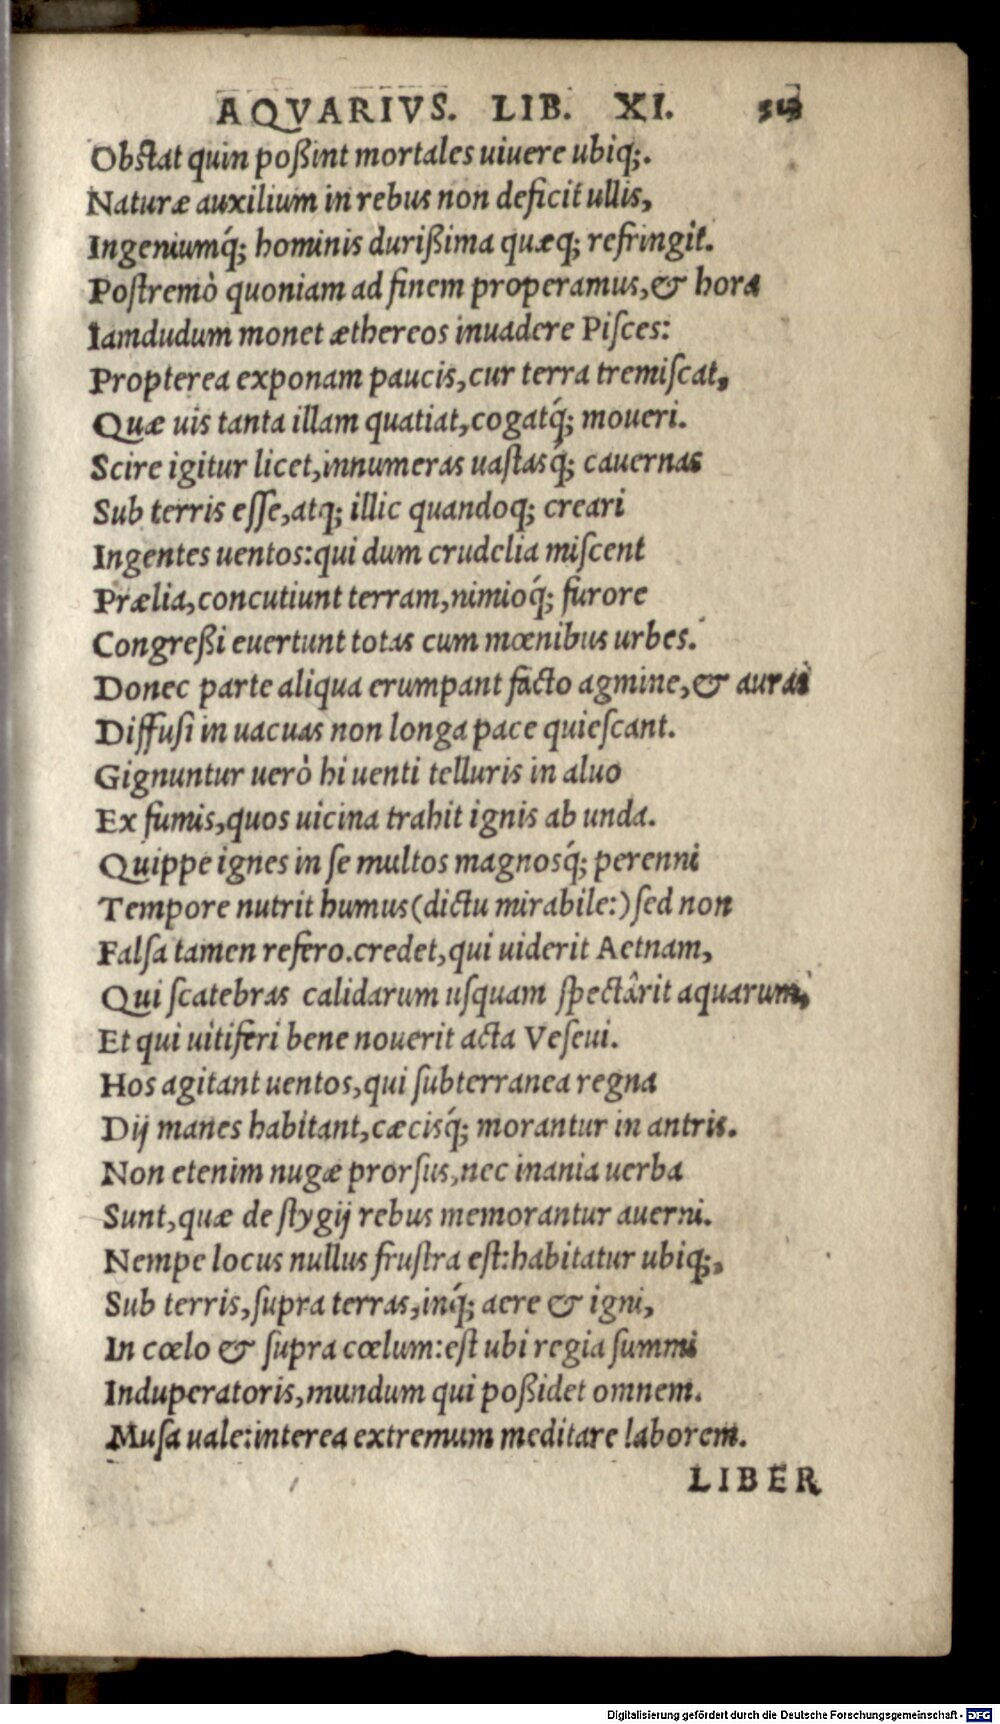 AQVARIVS. LIB. XI.
Obstat quin poßint mortales uiuere ubiq;.
Naturæ auxilium in rebus non deficit ullis,
Ingeniumq́; hominis durißima quæq; refringit.
Postremò quoniam ad finem properamus,& hora
Iamdudum monet æthereos inuadere Piſces:
Propterea exponam paucis,cur terra tremiſcat,
Quæ uis tanta illam quatiat,cogatq́; moueri.
Scire igitur licet,innumeras uaſtasq́; cauernas
Sub terris eſſe,atq; illic quandoq; creari
Ingentes uentos:qui dum crudelia miſcent
Prælia,concutiunt terram,nimioq́; furore
Congreßi euertunt totas cum mœnibus urbes.
Donec parte aliqua erumpant facto agmine,& auras
Diffuſi in uacuas non longa pace quieſcant.
Gignuntur uerò hi uenti telluris in aluo
Ex fumis,quos uicina trahit ignis ab unda.
Quippe ignes in ſe multos magnosq́; perenni
Tempore nutrit humus(dictu mirabile:)ſed non
Falſa tamen refero.credet,qui uiderit Aetnam,
Qui ſcatebras calidarum uſquam ſpectârit aquarum,
Et qui uitiferi bene nouerit acta Veſeui.
Hos agitant uentos,qui ſubterranea regna
Dij manes habitant,cæcisq́; morantur in antris.
Non etenim nugæ prorſus,nec inania uerba
Sunt,quæ de ſtygij rebus memorantur auerni.
Nempe locus nullus fruſtra eſt:habitatur ubiq;,
Sub terris,ſupra terras,inq́; aere & igni,
In cœlo & ſupra cœlum:eſt ubi regia ſummi
Induperatoris,mundum qui poßidet omnem.
Muſa uale:interea extremum meditare laborem.
LIBER
Digitalisierung gefördert durch die Deutsche Forschungsgemeinschaft - DFG